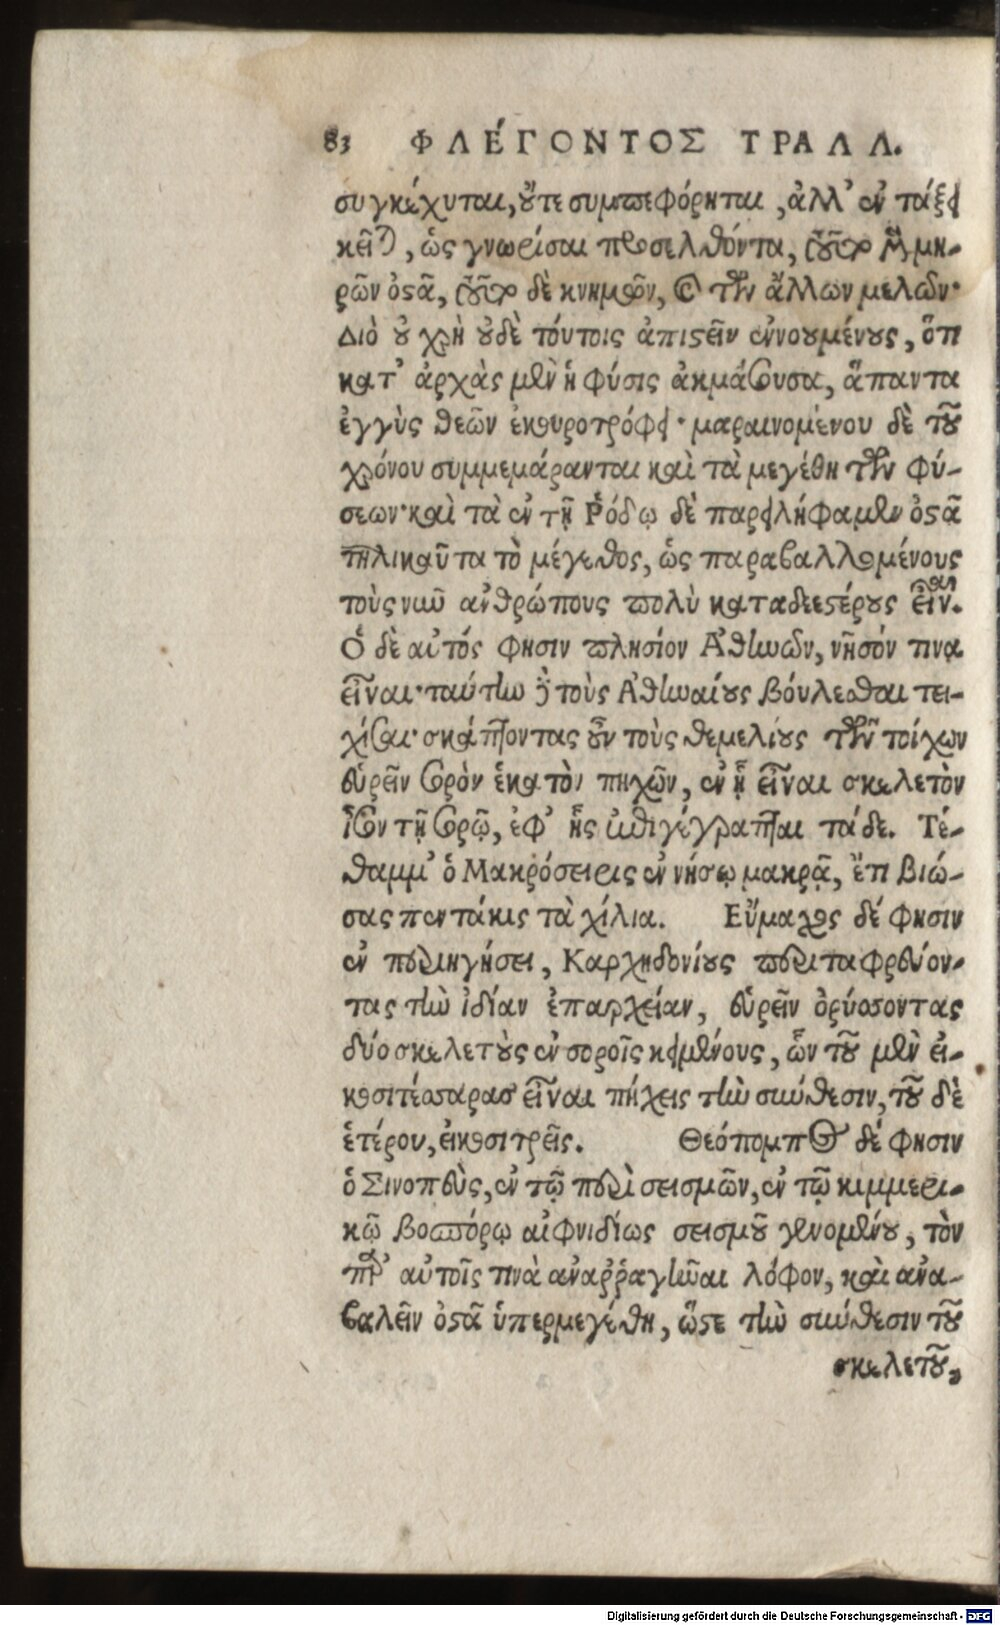 83 ΦΛΈΓΟΝΤΟΣ ΤΡΑΛΛ.
συγκέχυται, οὔτε συμπεφόρηται, ἀλλ' ἐν τάξει
κεῖται, ὡς γνωρίσαι προσελθόντα, τοῦτο μὲν μη-
ρῶν ὀστᾶ, τοῦτο δὲ κνημῶν, καὶ τῶν ἄλλων μελῶν·
Διὸ οὐ χρὴ οὐδὲ τούτοις ἀπιστεῖν ἐννουμένους, ὅτι
κατ' ἀρχὰς μὲν ἡ φύσις ἀκμάζουσα, ἅπαντα
ἐγγὺς θεῶν ἐκουροτρόφει· μαραινομένου δὲ τοῦ
χρόνου συμμεμάρανται καὶ τὰ μεγέθη τῶν φύ-
σεων· καὶ τὰ ἐν τῇ Ῥόδῳ δὲ παρειλήφαμεν ὀστᾶ
τηλικαῦτα τὸ μέγεθος, ὡς παραβαλλομένους
τοὺς νῦν ἀνθρώπους πολὺ καταδεεστέρους εἶναι.
Ὁ δὲ αὐτός φησιν πλησίον Ἀθηνῶν, νῆσόν τινα
εἶναι· ταύτην δὲ τοὺς Ἀθηναίους βούλεσθαι τει-
χίσαι· σκάπτοντας οὖν τοὺς θεμελίους τῶν τοίχων
εὑρεῖν σορὸν ἑκατὸν πηχῶν, ἐν ᾗ εἶναι σκελετὸν
ἴσον τῇ σορῷ, ἐφ' ἧς ἐπιγέγραπται τάδε. Τέ-
θαμμ' ὁ Μακρόσειρις ἐν νήσῳ μακρᾷ, ἔτι βιώ-
σας πεντάκις τὰ χίλια. Εὔμαχος δέ φησιν
ἐν περιηγήσει, Καρχηδονίους περιταφρεύον-
τας τὴν ἰδίαν ἐπαρχείαν, εὑρεῖν ὀρύσσοντας
δύο σκελετοὺς ἐν σοροῖς κειμένους, ὧν τοῦ μὲν εἰ-
κοσιτέσσαρας εἶναι πήχεις τὴν σύνθεσιν, τοῦ δὲ
ἑτέρου, εἰκοσιτρεῖς. Θεόπομπος δέ φησιν
ὁ Σινοπεὺς, ἐν τῷ περὶ σεισμῶν, ἐν τῷ κιμμερι-
κῷ βοσπόρῳ αἰφνιδίως σεισμοῦ γενομένου, τὸν
παρ' αὐτοῖς τινὰ ἀναῤῥαγῆναι λόφον, καὶ ἀνα-
βαλεῖν ὀστᾶ ὑπερμεγέθη, ὥστε τὴν σύνθεσιν τοῦ
σκελετοῦ,
Digitalisierung gefördert durch die Deutsche Forschungsgemeinschaft - DFG